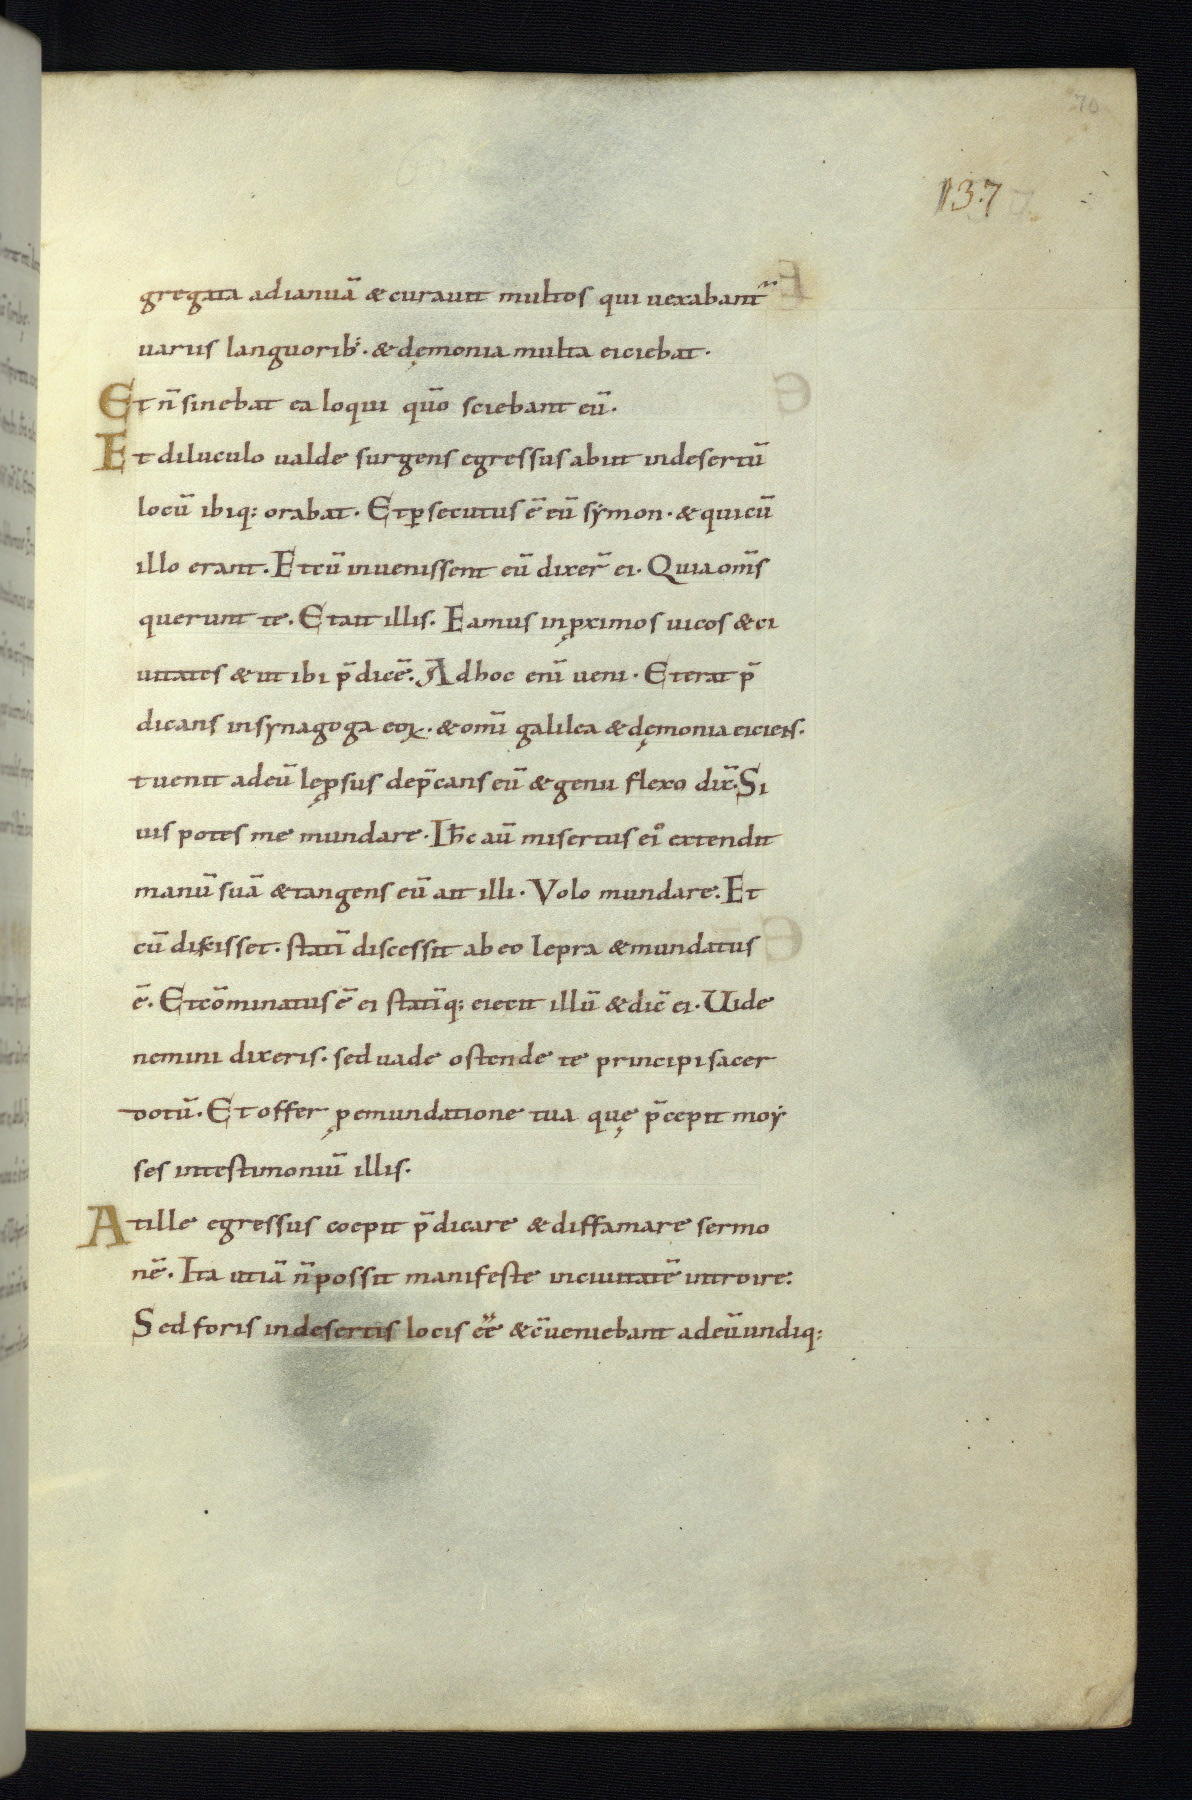 70
137
gregata adianuā & curauit multos qui uexabant᷑
uariis languorib;. & dęmonia multa eiciebat.
Et n̄ sinebat ea loqui qūo sciebant eū.
Et diluculo ualde surgens egressus abiit indesertū
locū ibiq; orabat. Et ꝑsecutus ē eū sẏmon. & quicū
illo erant. Et cū inuenissent eū dixer̄ ei. Quia om̄s
querunt te. Et ait illis. Eamus inꝓximos uicos & ci
uitates & ut ibi p̄dicē. Ad hoc enī ueni. Et erat p̄
dicans insynagoga eoꝝ. & omī galilea & dęmonia eiciens.
t uenit adeū leprosus dep̄cans eū & genu flexo dix̄. Si
uis potes me mundare. Ih̄c aū misertus ei᷒ extendit
manū suā & tangens eū ait illi. Volo mundare. Et
cū dixisset. statī discessit ab eo lepra & mundatus
ē. Et cōminatus ē ei statīq; eiecit illū & dic̄ ei. Uide
nemini dixeris. sed uade ostende te principi sacer
dotū. Et offer ꝓ emundatione tua quę p̄cepit moẏ
ses intestimoniū illis.
At ille egressus coepit p̄dicare & diffamare sermo
nē. Ita ut iā n̄ possit manifeste inciuitatē introire.
Sed foris indesertis locis eē & c̄ueniebant adeū undiq;